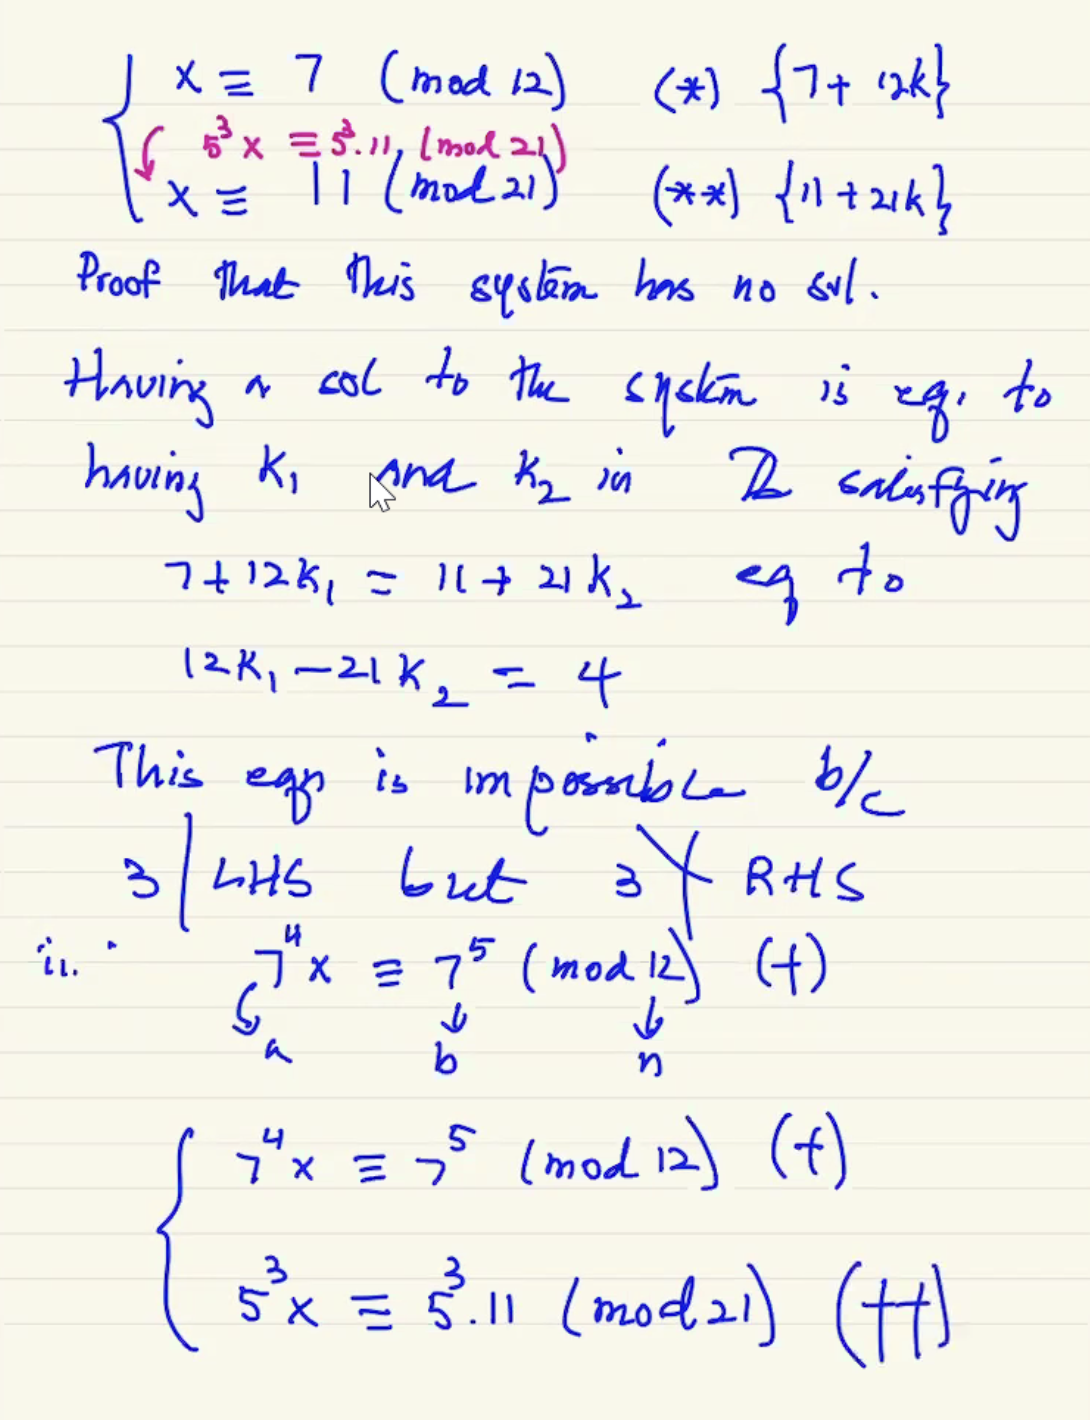 x ≡ 7 (mod 12) (*) {7 + 12k}
5³x ≡ 5³.11 (mod 21)
x ≡ 11 (mod 21) (**) {11 + 21k}
Proof that this system has no sol.
Having a sol to the system is eq. to
having k₁ and k₂ in ℤ satisfying
7 + 12k₁ = 11 + 21k₂ eq to
12k₁ − 21k₂ = 4
This eqn is impossible b/c
3 | LHS but 3 ∤ RHS
ii. 7⁴x ≡ 7⁵ (mod 12) (†)
a b n
7⁴x ≡ 7⁵ (mod 12) (†)
5³x ≡ 5³.11 (mod 21) (††)